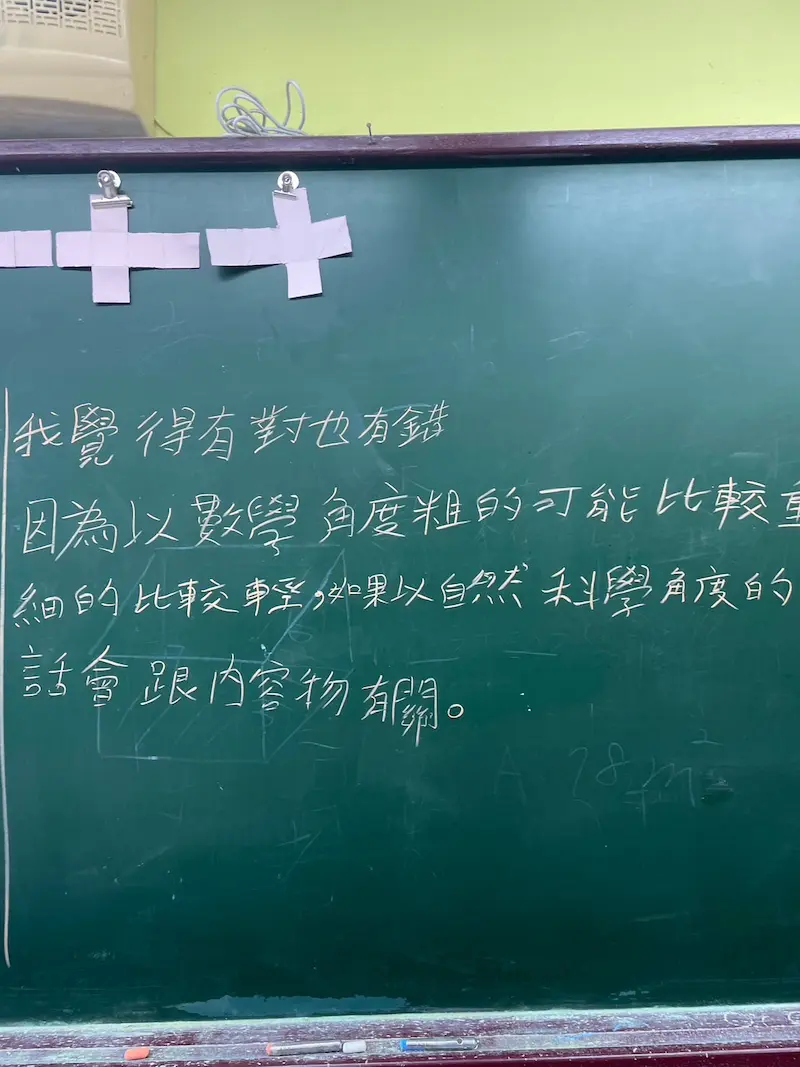 我覺得有對也有錯
因為以數學角度粗的可能比較重
細的比較輕,如果以自然科學角度的
話會跟內容物有關。
A 28m²